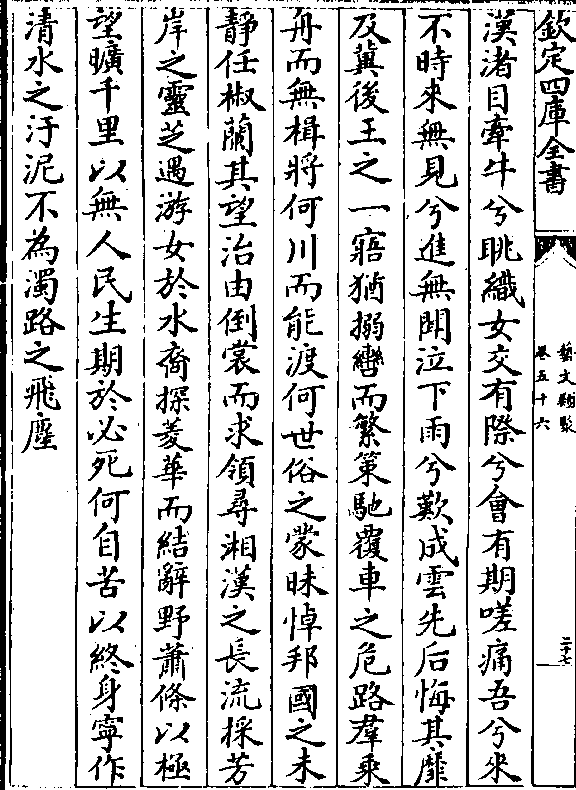 欽定四庫全書
藝文類聚
卷五十六
二十七
漢渚目牽牛兮眺織女交有際兮會有期嗟痛吾兮來
不時來無見兮進無聞泣下雨兮歎成雲先后悔其靡
及冀後王之一寤猶搦轡而繁策馳覆車之危路羣乘
舟而無楫將何川而能渡何世俗之蒙昧悼邦國之未
靜任椒蘭其望治由倒裳而求領尋湘漢之長流採芳
岸之靈芝遇游女於水裔探菱華而結辭野蕭條以極
望曠千里以無人民生期於必死何自苦以終身寧作
清水之汙泥不為濁路之飛塵